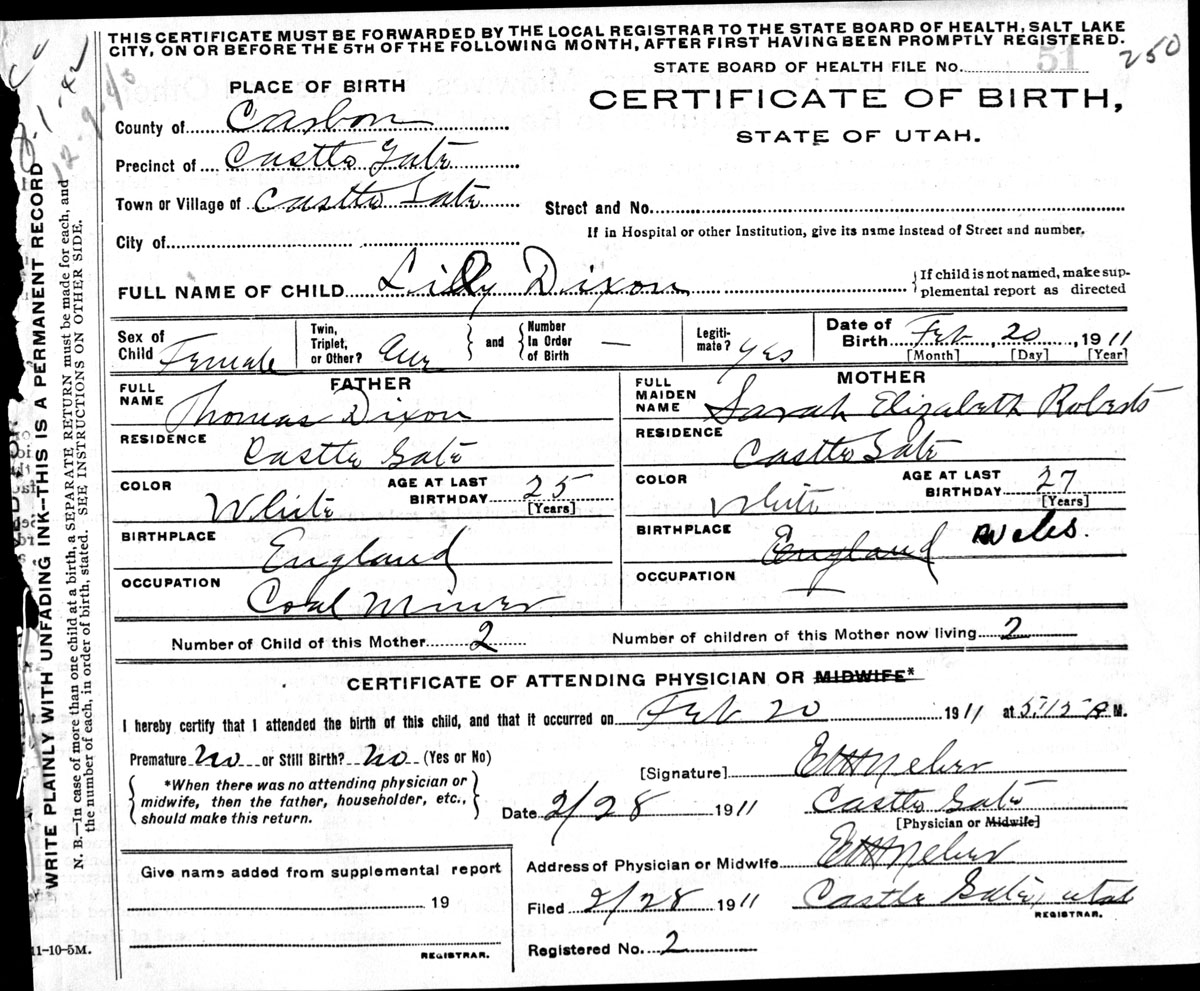 THIS CERTIFICATE MUST BE FORWARDED BY THE LOCAL REGISTRAR TO THE STATE BOARD OF HEALTH, SALT LAKE
CITY, ON OR BEFORE THE 5TH OF THE FOLLOWING MONTH, AFTER FIRST HAVING BEEN PROMPTLY REGISTERED.
STATE BOARD OF HEALTH FILE No. 51 250
PLACE OF BIRTH
CERTIFICATE OF BIRTH,
STATE OF UTAH.
County of Carbon
Precinct of Castle Gate
Town or Village of Castle Gate
Street and No.
If in Hospital or other Institution, give its name instead of Street and number.
City of
FULL NAME OF CHILD Lilly Dixon
{If child is not named, make sup-
plemental report as directed
Sex of Child Female
Twin, Triplet, or Other? and Number In Order of Birth —
Legiti-mate? Yes
Date of Birth Feb 20, 1911
[Month] [Day] [Year]
FATHER
FULL NAME Thomas Dixon
RESIDENCE Castle Gate
COLOR White AGE AT LAST BIRTHDAY 25
[Years]
BIRTHPLACE England
OCCUPATION Coal Miner
MOTHER
FULL MAIDEN NAME Sarah Elizabeth Roberts
RESIDENCE Castle Gate
COLOR White AGE AT LAST BIRTHDAY 27
[Years]
BIRTHPLACE England
OCCUPATION
Number of Child of this Mother 2 Number of children of this Mother now living 2
CERTIFICATE OF ATTENDING PHYSICIAN OR MIDWIFE*
I hereby certify that I attended the birth of this child, and that it occurred on Feb 20 1911 at 5:15 A M.
Premature No or Still Birth? No (Yes or No)
{*When there was no attending physician or
midwife, then the father, householder, etc.,
should make this return.}
[Signature]
Date 2/28 1911 Castle Gate
[Physician or Midwife]
Address of Physician or Midwife
Filed 2/28 1911 Castle Gate, Utah
REGISTRAR.
Registered No. 2
Give name added from supplemental report
19
REGISTRAR.
11-10-5M.
WRITE PLAINLY WITH UNFADING INK—THIS IS A PERMANENT RECORD
N. B.—In case of more than one child at a birth, a SEPARATE RETURN must be made for each, and
the number of each, in order of birth, stated. SEE INSTRUCTIONS ON OTHER SIDE.